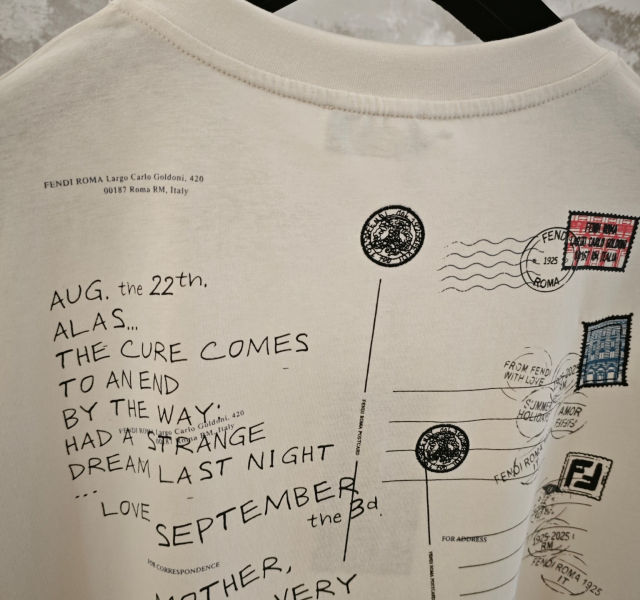 FENDI ROMA Largo Carlo Goldoni, 420
00187 Roma RM, Italy
AUG. the 22th.
ALAS...
THE CURE COMES
TO AN END
BY THE WAY:
HAD A STRANGE
DREAM LAST NIGHT
...
LOVE
SEPTEMBER
the 3d.
FOR CORRESPONDENCE
MOTHER,
VERY
FENDI ROMA Largo Carlo Goldoni, 420
Roma RM, Italy
FENDI ROMA POSTCARD
FENDI
1925
ROMA
FENDI ROMA
LARGO CARLO GOLDONI
ITALIA
FROM FENDI
WITH LOVE
SUMMER
HOLIDAY
AMOR
FENDI ROMA
IT
FOR ADDRESS
1925-2025
RM
FENDI ROMA 1925
IT